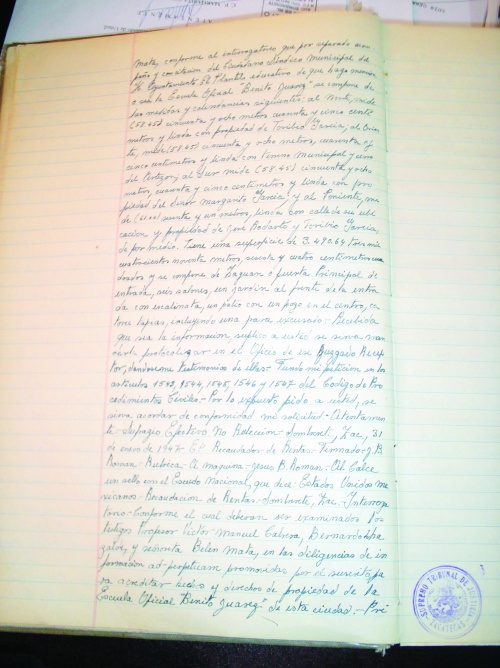 Mata, conforme al interrogatorio que por separado acom-
paño y con citacion del Ciudadano Sindico Municipal del
H. Ayuntamiento. El Plantel educativo de que hago mencion
o sea la Escuela Oficial "Benito Juarez" se compone de
las medidas y colindancias siguientes: al Norte, mide
(58.45) cincuenta y ocho metros cuarenta y cinco centi
metros y linda con propiedad de Toribio Garcia; al Orien
te, mide (58.45) cincuenta y ocho metros, cuarenta y
cinco centimetros y linda con Terreno Municipal y uno
del Cortijo; al Sur mide (58.45) cincuenta y ocho
metros, cuarenta y cinco centimetros y linda con pro
piedad del señor Margarito Garcia; y al Poniente, mi
de (61.00) sesenta y un metros, linda con calle de su ubi
cacion y propiedad de Jose Rodarte y Toribio Garcia,
de por medio. Tiene una superficie de 3.490.64 Tres mil
cuatrocientos noventa metros, sesenta y cuatro centimetros cua
drados y se compone de Zaguan o puerta Principal de
entrada, seis salones, un jardin al frente de la entra
da con escalinata, un patio con un pozo en el centro, ca
torce tapias, incluyendo una para excusado.- Recibida
que sea la informacion, suplico a usted se sirva man
darla protocolizar en el Oficio de ese Juzgado Recep
tor, dandoseme testimonios de ellas.- Fundo mi peticion en los
articulos 1543, 1544, 1545, 1546 y 1547 del Codigo de Pro
cedimientos Civiles.- Por lo expuesto pido a usted, se
sirva acordar de conformidad mi solicitud.- Atentamen
te.- Sufragio Efectivo No Reeleccion.- Sombrerete, Zac., 31
de enero de 1947.- El Recaudador de Rentas.- Firmado.- J. B.
Roman.- Rubrica.- A maquina.- Jesus B. Roman.- Al Calce
un sello con el Escudo Nacional, que dice: Estados Unidos Me
xicanos.- Recaudacion de Rentas.- Sombrerete, Zac.- Interroga
torio.- Conforme el cual deberan ser examinados los
testigos Profesor Victor Manuel Cabrera, Bernardo
y señorita Belen Mata, en las diligencias de in
formacion ad-perpetuam promovidas por el suscrito, pa
ra acreditar hecho y derechos de propiedad de la
Escuela Oficial "Benito Juarez" de esta ciudad.- Pri
SUPREMO TRIBUNAL DE JUSTICIA
ZACATECAS